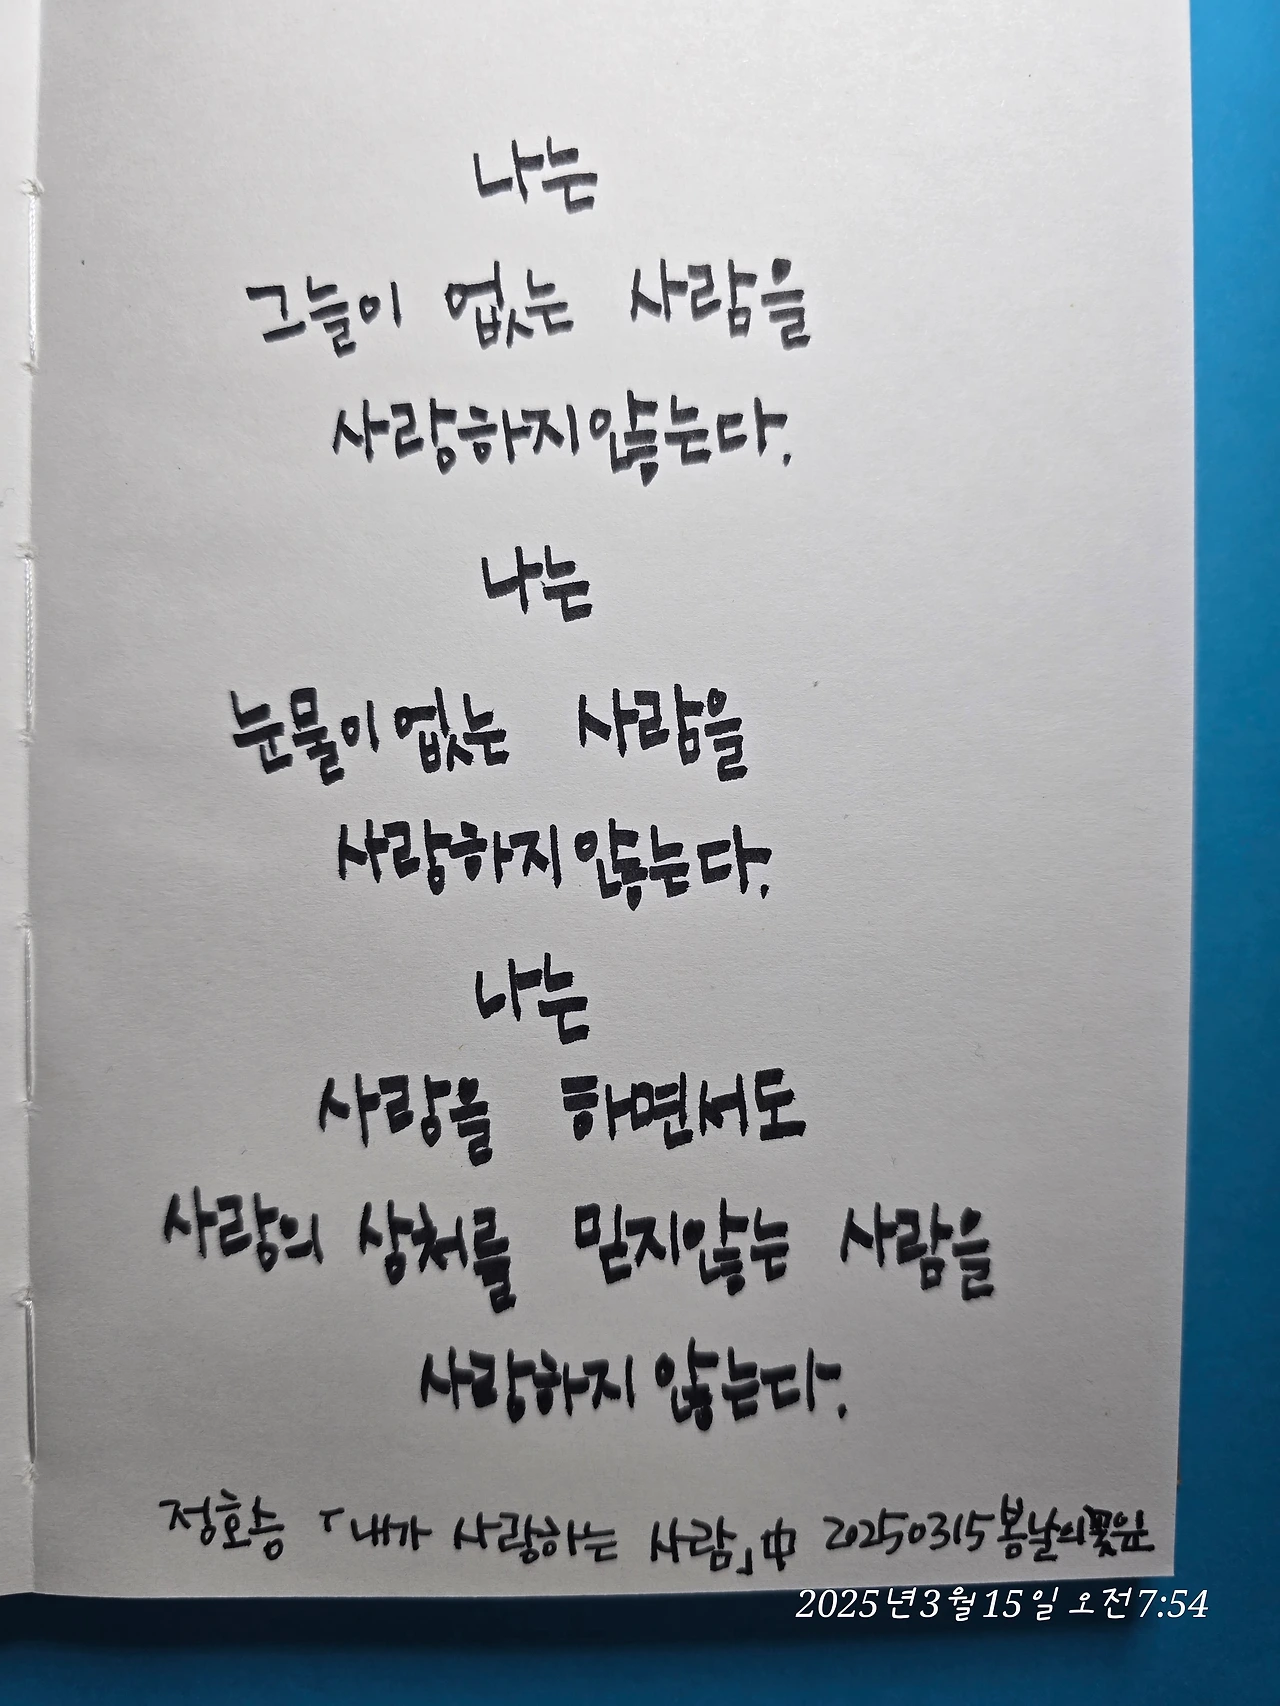 나는
그늘이 없는 사람을
사랑하지 않는다.
나는
눈물이 없는 사람을
사랑하지 않는다.
나는
사랑을 하면서도
사랑의 상처를 믿지않는 사람을
사랑하지 않는다.
정호승 「내가 사랑하는 사람」中 20250315 봄날의꽃잎
2025년 3월 15일 오전 7:54